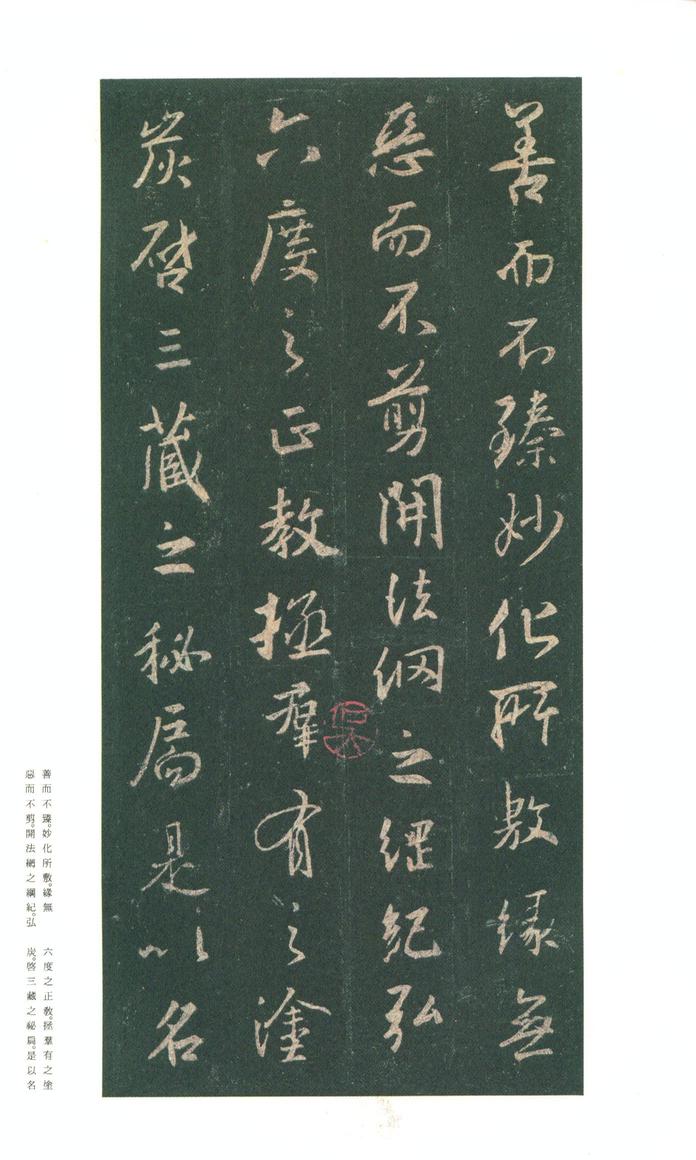 善而不臻妙化所敷緣無
惡而不剪開法網之綱紀弘
六度之正教拯羣有之塗
炭啓三藏之秘扃是以名
善而不臻。妙化所敷。緣無
惡而不剪。開法網之綱紀。弘
六度之正教。拯羣有之塗
炭。啓三藏之祕扃。是以名